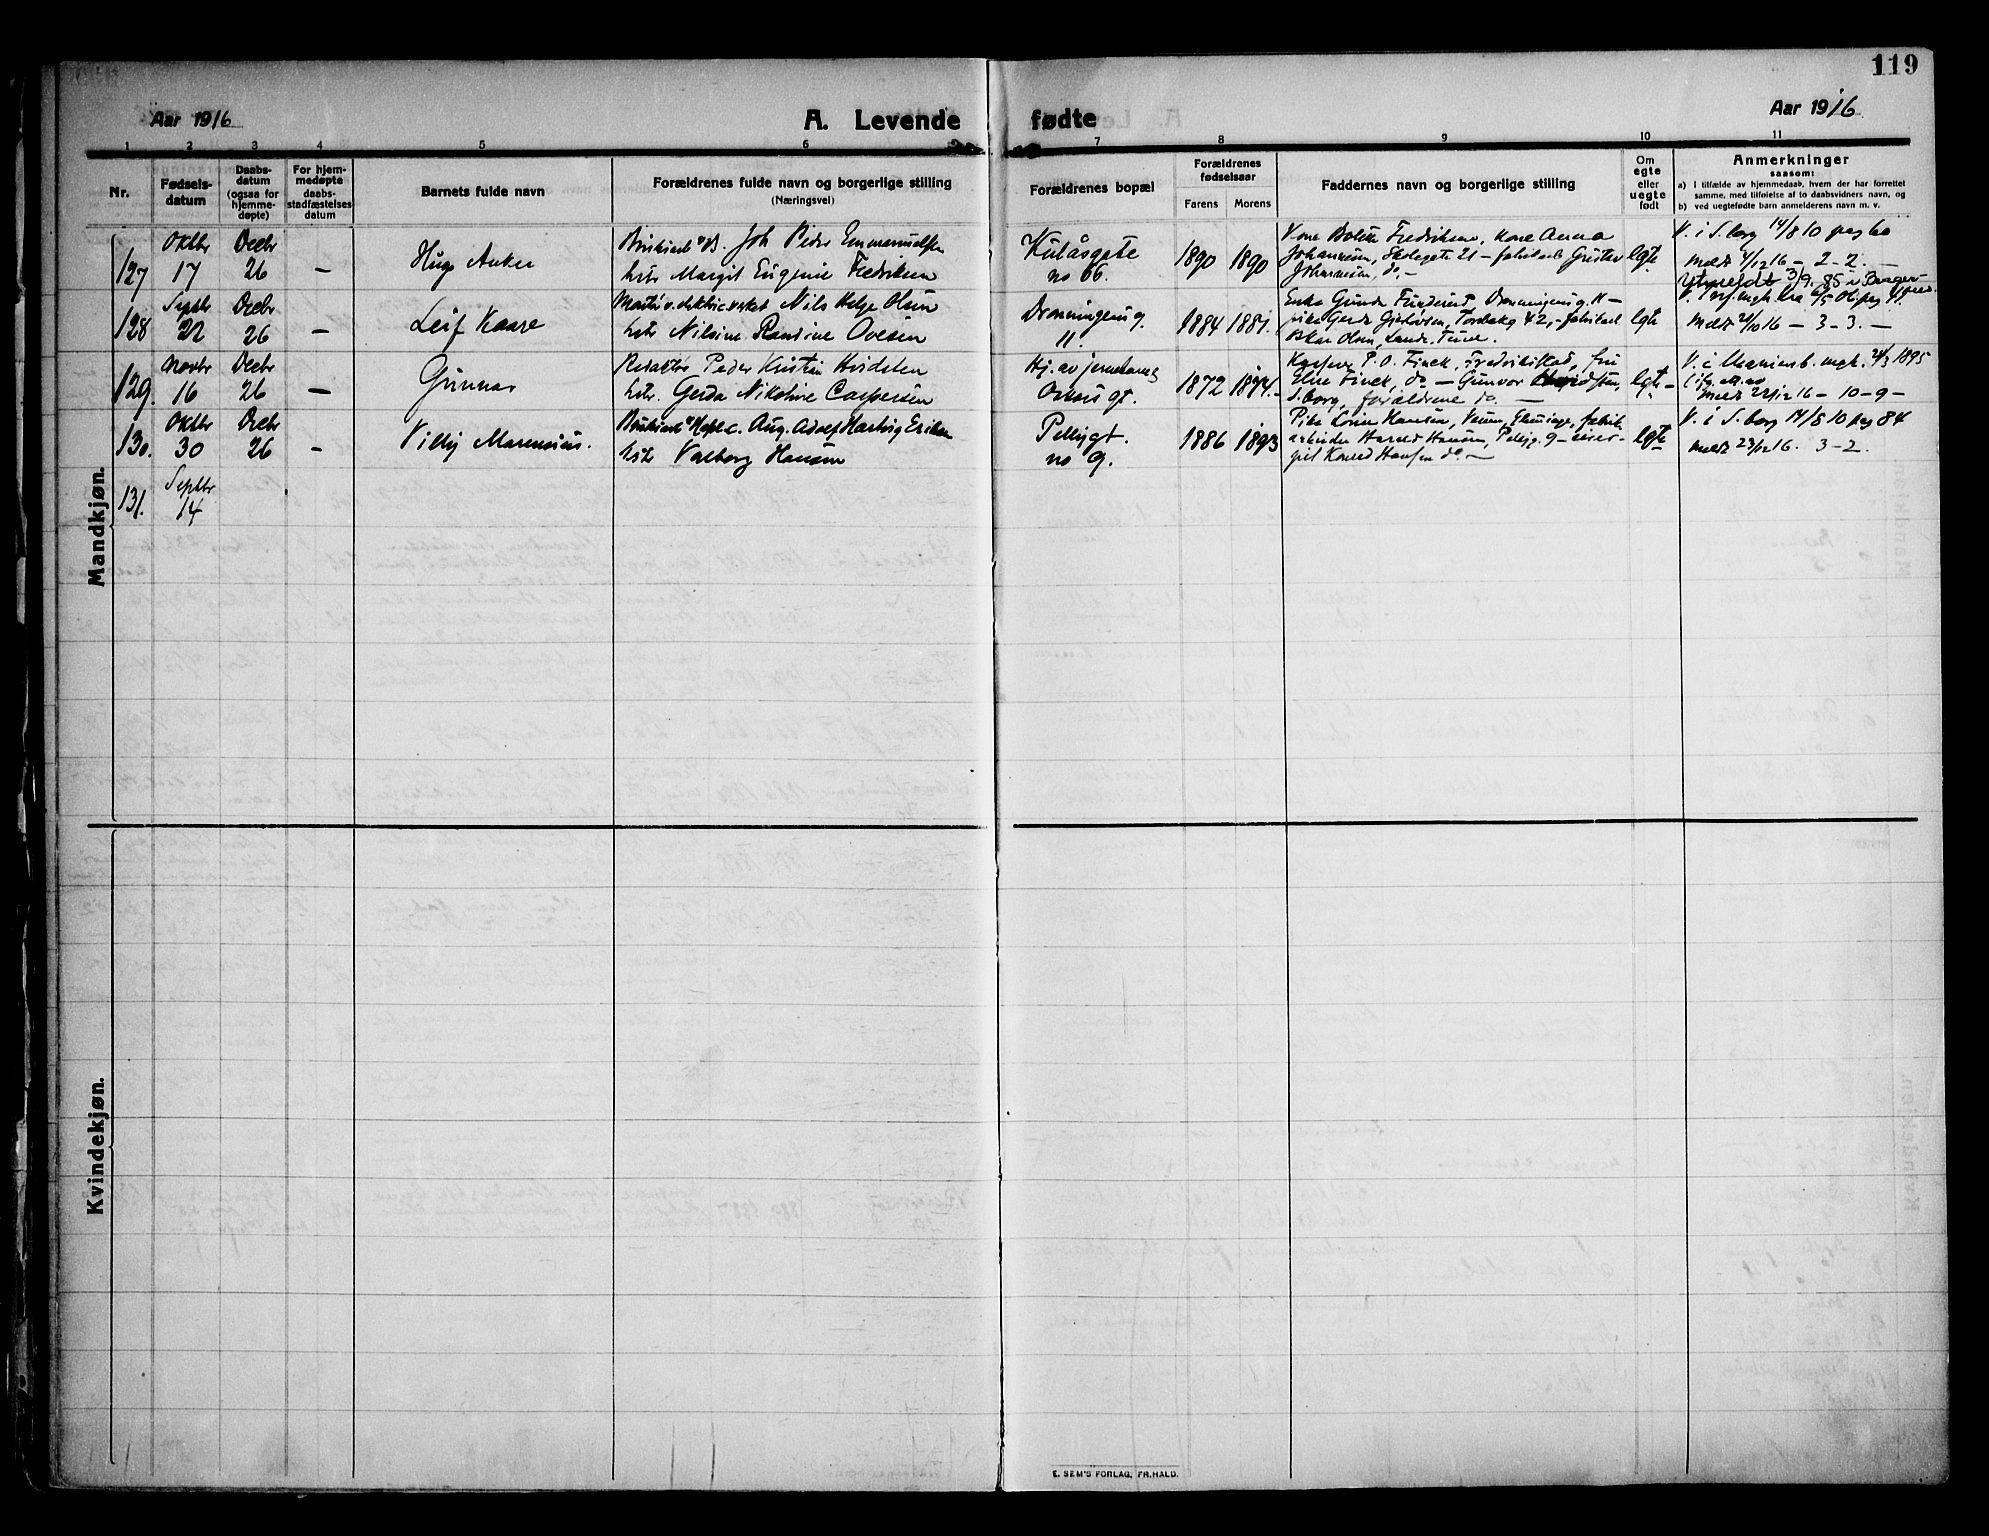 119
Aar 1916
A. Levende
fødte
Aar 1916
1 2 3 4 5 6 7 8 9 10 11
Nr.
Fødsels-
datum
Daabs-
datum
(ogsaa for
hjemme-
døpte)
For hjem-
medøpte
daabs-
stadfæstelses
datum
Barnets fulde navn
Forældrenes fulde navn og borgerlige stilling
(Næringsvei)
Forældrenes bopæl
Forældrenes
fødselsaar
Farens Morens
Faddernes navn og borgerlige stilling
Om
egte
eller
uegte
født
Anmerkninger
saasom:
a) I tilfælde av hjemmedaab, hvem der har forrettet
samme, med tilføielse av to daabsvidners navn, og
b) ved uegtefødte barn anmelderens navn m. v.
Mandkjøn.
127 Oktbr 17 Decbr 26 –
Hugo Anker
Joh Peder Emmanuelsen
hstr Margit Eugenie Fredriksen
Kulåsgate
no 66.
1890 1890
Kone Bolette Fredriksen, Kone Anna
Johansen, Skolegata 21 – fabrikarb Gustav
Johansen, do, –
egte
V. i S.borg 14/8 10 pag 60
meldt 4/12 16 – 2 – 2. –
Utmeldt 3/9. 85
128 Septbr 22 Decbr 26 –
Leif Kaare
Nils Helge Olsen
hstr Nilsine Randine Ovesen
Dronningensg.
11.
1884 1881.
Enke Gunda
pike Gerda Torsbekg 42, – fabrikarb
Oskar Olsen, Lande, Tune.
egte
meldt 2/10 16 – 3 – 3. –
129. Novbr 16 Decbr 26 –
Gunnar
Redaktør Peder Kristian Hvidsten
hstr. Gerda Nikoline Caspersen
Hj. av jernbane &
gt.
1872 1874.
P. O. Finck, Fredrikstad, fru
Else Finck, do – Gunvor Hvidsten,
S.borg, forældrene do. –
egte –
mgh. 24/3 1895
meldt 22/12 16 – 10 – 9 –
130. Oktbr 30 Decbr 26 –
Villy Marensius.
Aug. Adolf Hartvig Eriksen
hstr Valborg Hansen
Pellygt.
no 9.
1886 1893
Pike Hansen, fabrik
arbeider Harald Hansen, Pellyg. 9 –
Konrad Hansen do. –
egte
V. i S.borg 14/8 10 pag 84
meldt 23/12 16. 3 – 2.
131. Septbr 14
Kvindekjøn.
E. SEM'S FORLAG, FR.HALD.